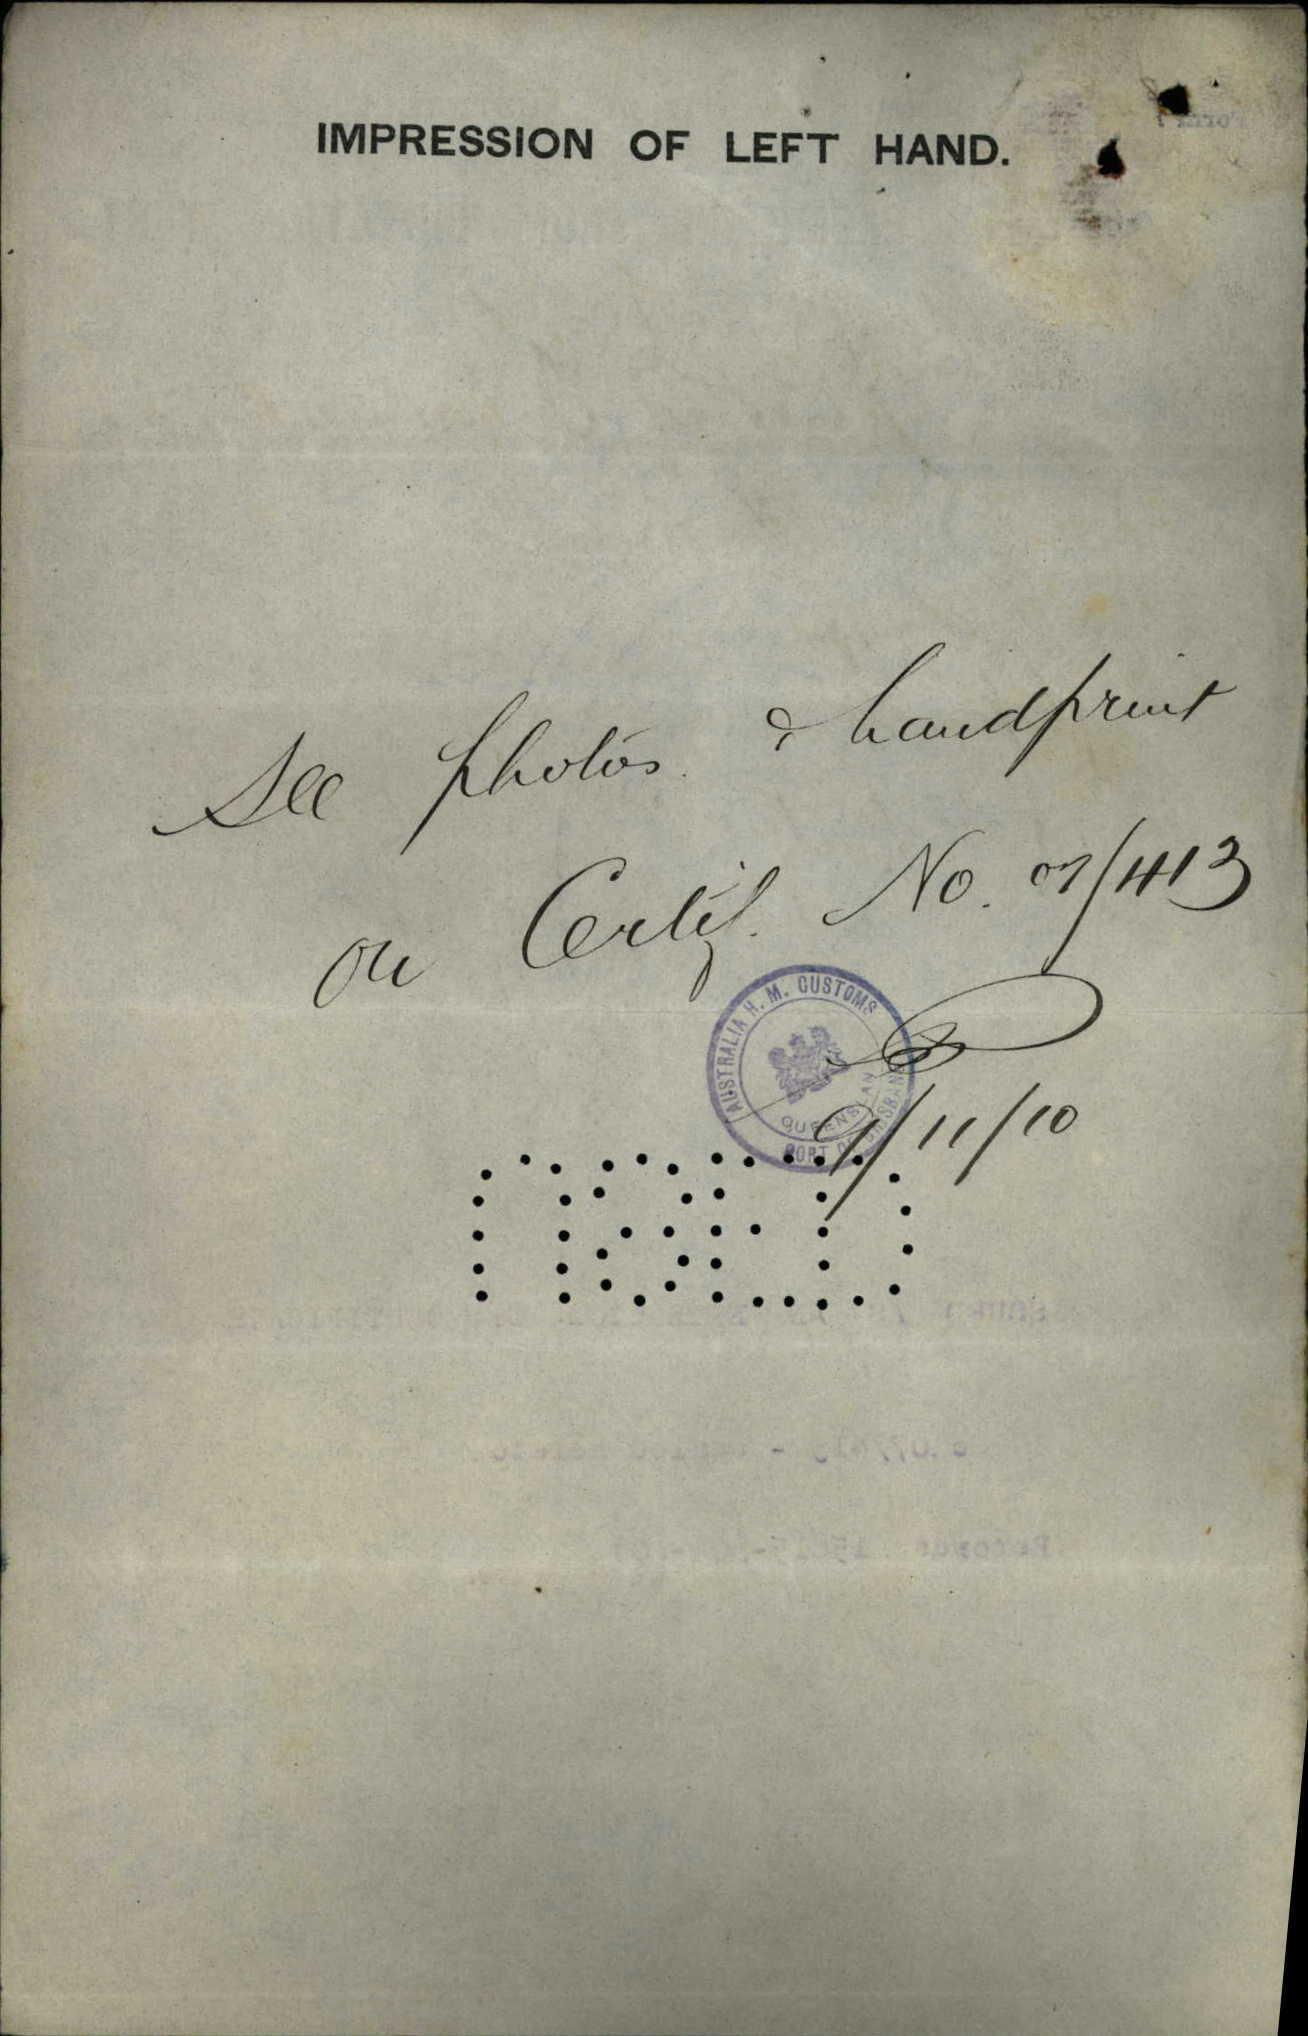 IMPRESSION OF LEFT HAND.
See photos & handprint
on Certif. No. 07/413
AUSTRALIA H. M. CUSTOMS
QUEENSLAND
PORT OF BRISBANE
9/11/10